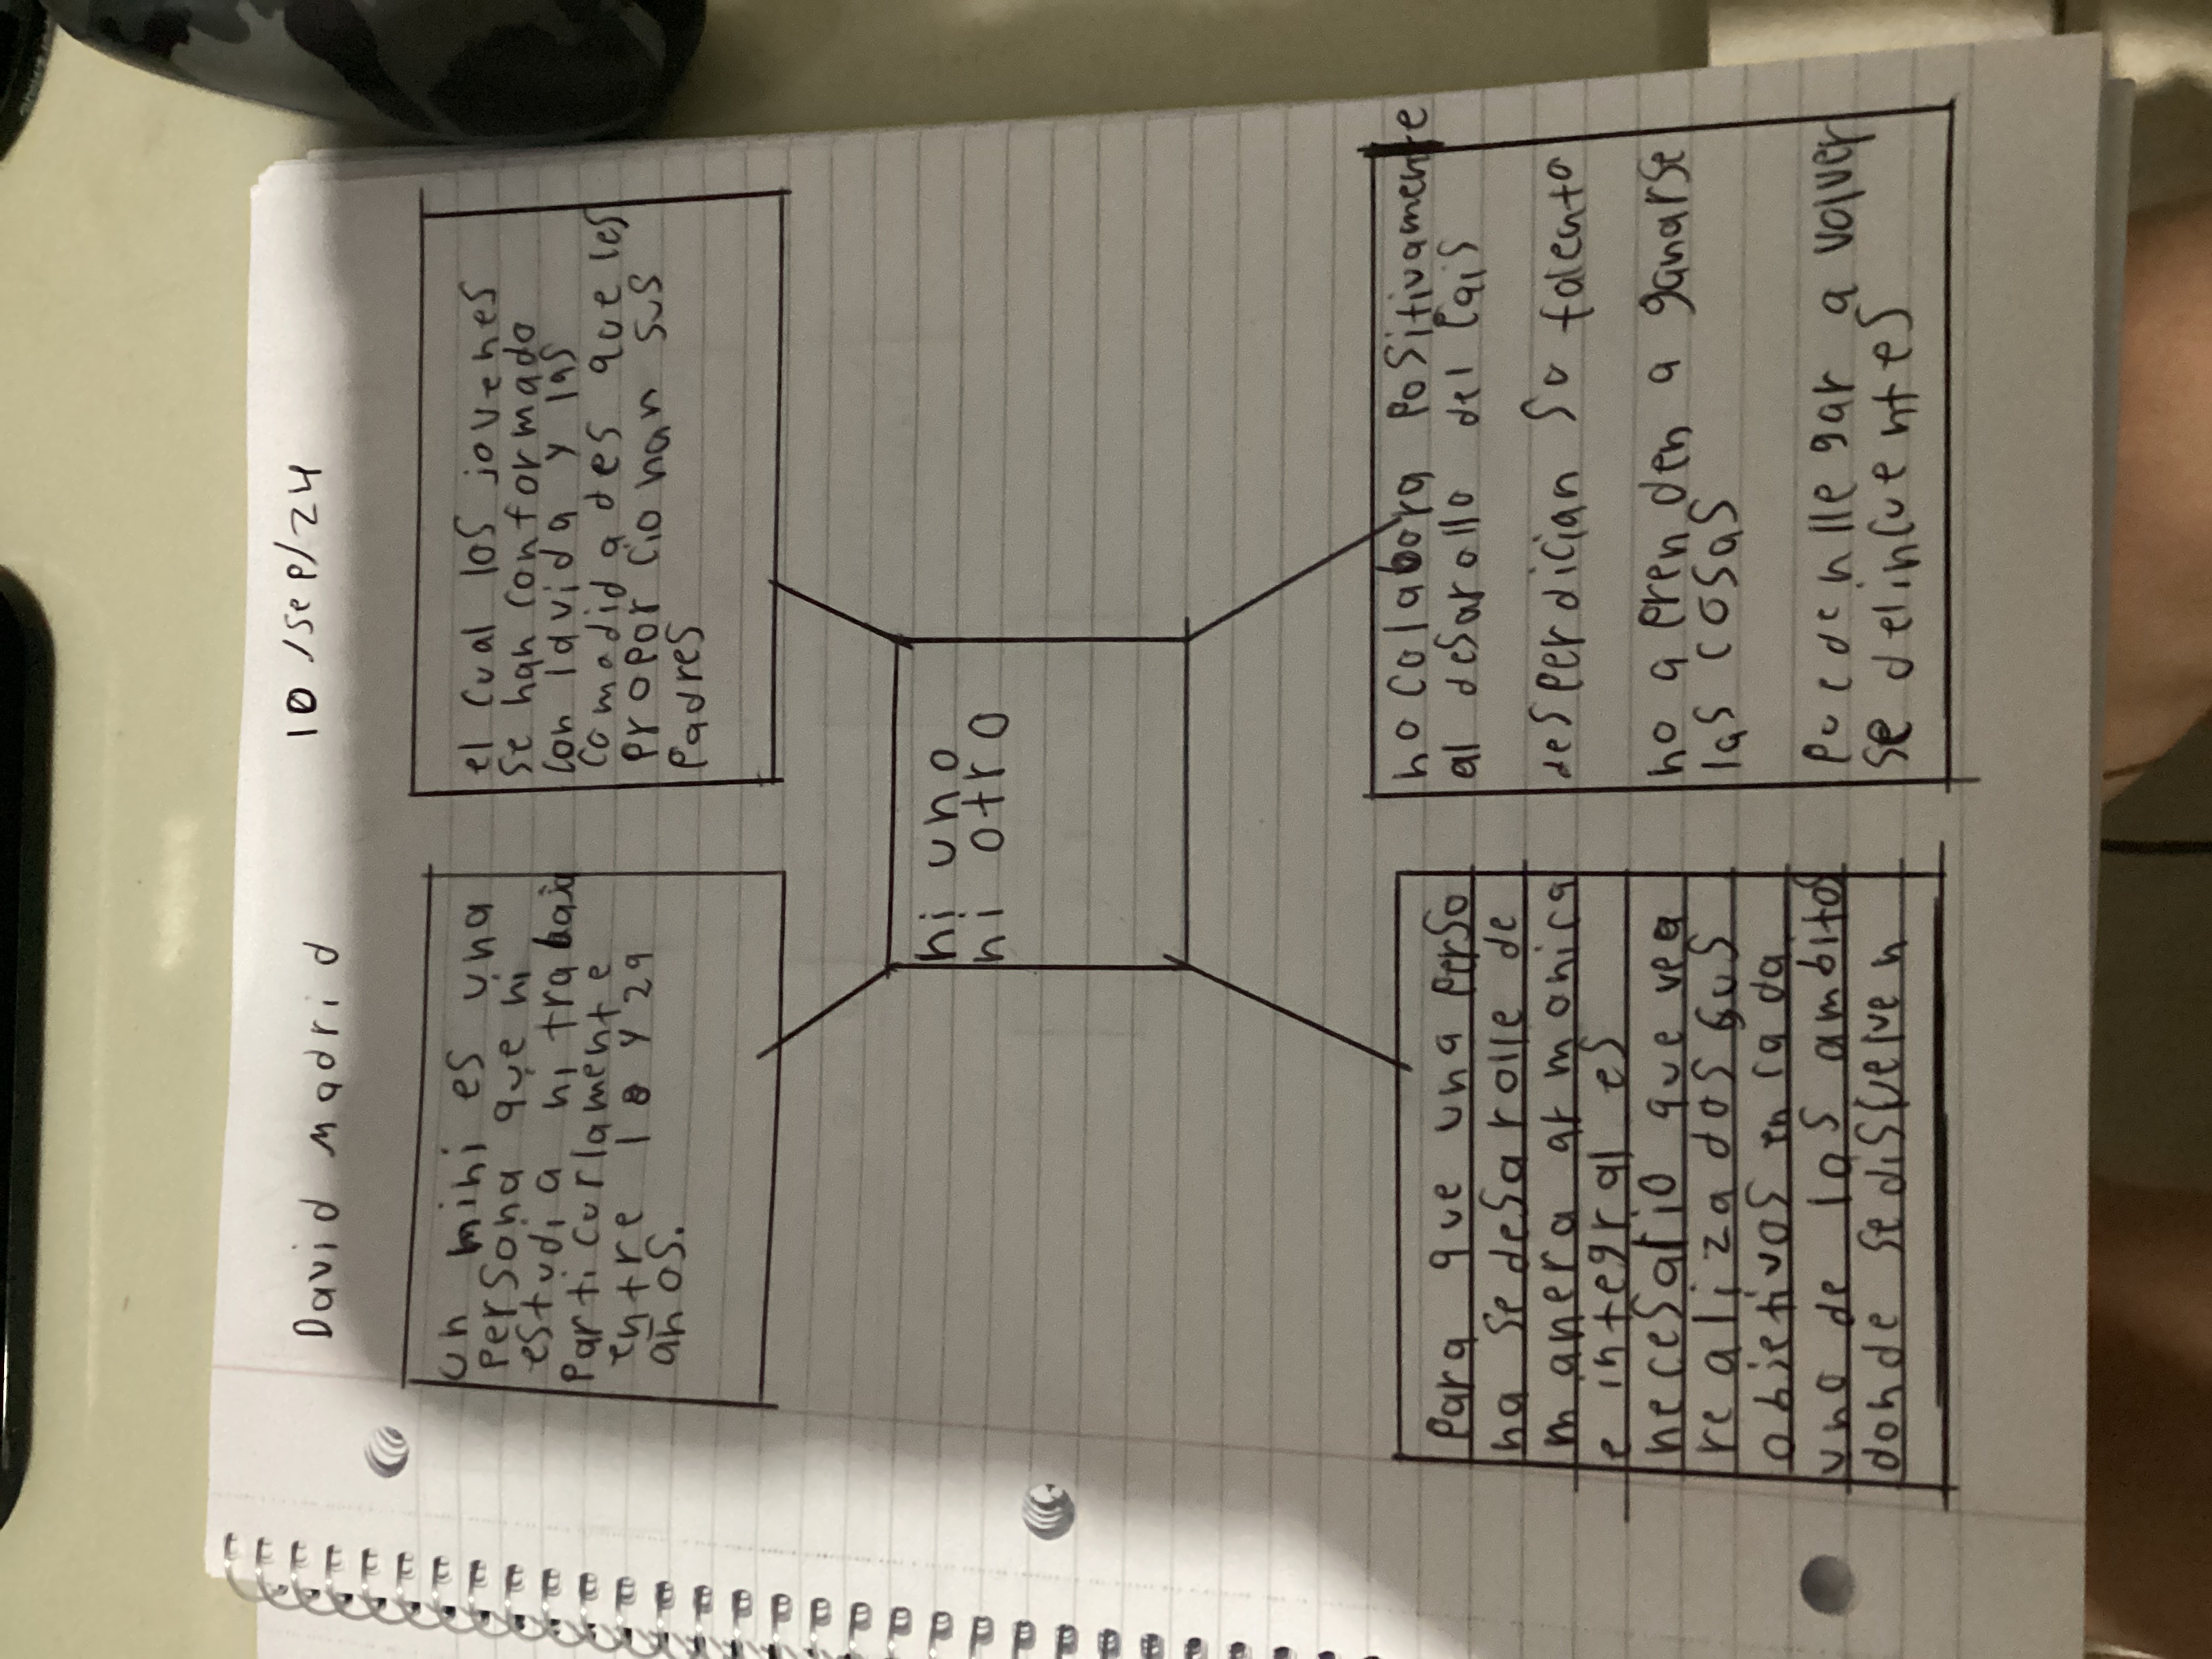 David madrid 10/sep/24
un mini es una
persona que ni
estudia ni trabaja
particurlamente
entre 18 y 29
años.
el cual los jovenes
se han conformado
con lavida y las
comodidades que les
proporcionan sus
padres
ni uno
ni otro
Para que una perso
na se desarolle de
manera armonica
e integral es
necesario que vea
realizados sus
objetivos en cada
uno de los ambitos
donde sedisuelven
no colabora positivamente
al desarollo del Pais
desperdician su talento
no aprenden a ganarse
las cosas
pueden llegar a volver
se delincuentes